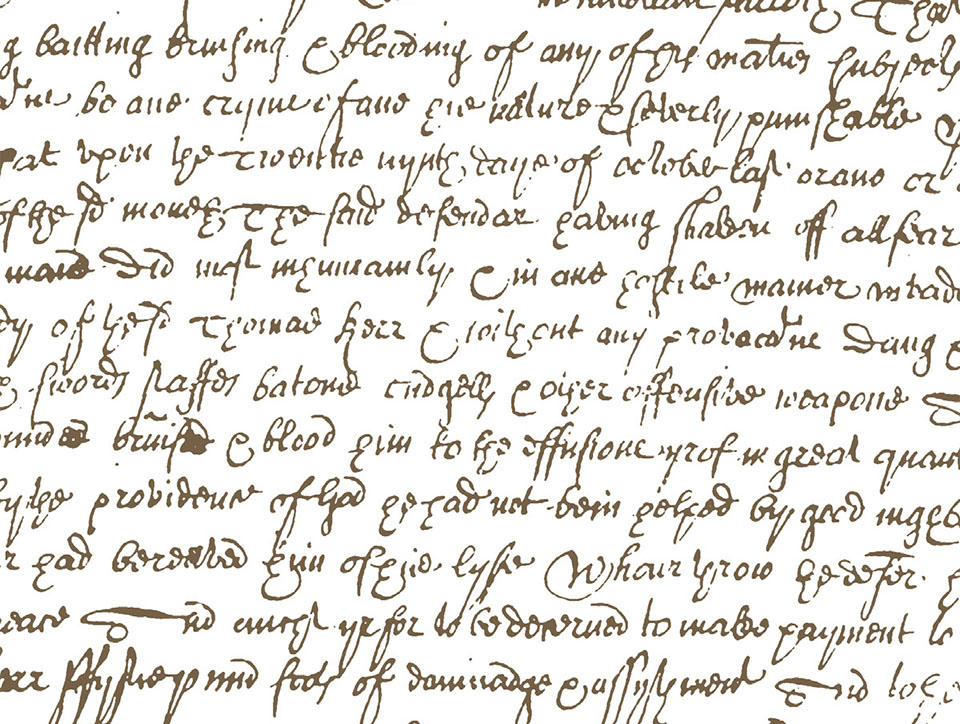 batting bruising & blooding of any of his maties subjects
be ane cryme of ane hie nature & severly punishable
upon the Twentie nynth daye of october last or ane or
of the sd moneth The said defendar having shaken off all fear
did most inhumanly & in ane hostile maner
of the sd Thomas Kerr & without any provocatne
swords staffes batons cudgells & other offensive weapons
bruised & blood him to the effusione yrof in great
by the providence of God he had not bein helped by good
had bereaved him of his lyffe Whairthrow the defer
And aught yrfor to be decerned to make payment to
ffyftie pund scots of damnadge & assythment And to be